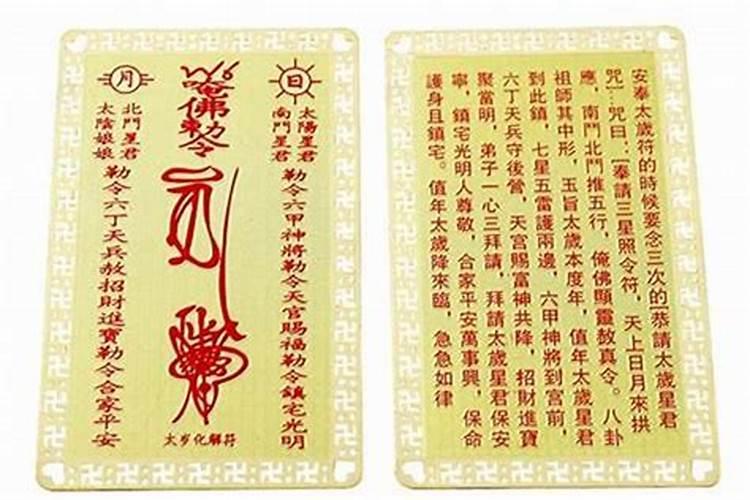 日
太陽星君
南鬥星君
勒令六甲神將勒令天官賜福勒令鎮宅光明
唵佛勅令
太岁化解符
月
北鬥星君
太陰娘娘
勒令六丁天兵敖招財進寶勒令合家平安
安奉太歲符的時候要念三次的[恭請太歲星君
咒]…咒曰：[奉請三星照令符，天上日月來拱
應，南鬥北鬥推五行，俺佛顯靈敖真令。八卦
祖師其中形，玉旨太歲本度年，值年太歲星君
到此鎮，七星五雷護兩邊，六甲神將到宮前，
六丁天兵守後營，天宮賜富神共降，招財進寶
聚當明，弟子一心三拜請，拜請太歲星君保安
寧，鎮宅光明人尊敬，合家平安萬事興，保命
護身且鎮宅。值年太歲降來臨，急急如律